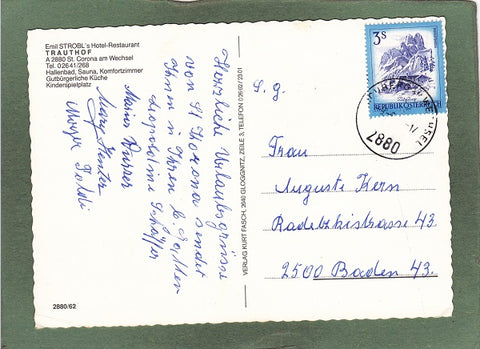 Emil STROBL's Hotel-Restaurant
TRAUTHOF
A 2880 St. Corona am Wechsel
Tel. 02641/268
Hallenbad, Sauna, Komfortzimmer
Gutbürgerliche Küche
Kinderspielplatz
Herzliche Urlaubsgrüsse
von St Corona sendet
Ihnen
Leopoldine
Maria
Mary
Poldi
2880/62
VERLAG KURT FASCH, 2640 GLOGGNITZ, ZEILE 3, TELEFON 0 26 62 / 23 01
3S
REPUBLIK ÖSTERREICH
2880
S. g.
Frau
Auguste Kern
Radetzkistrasse 43.
2500 Baden 43.